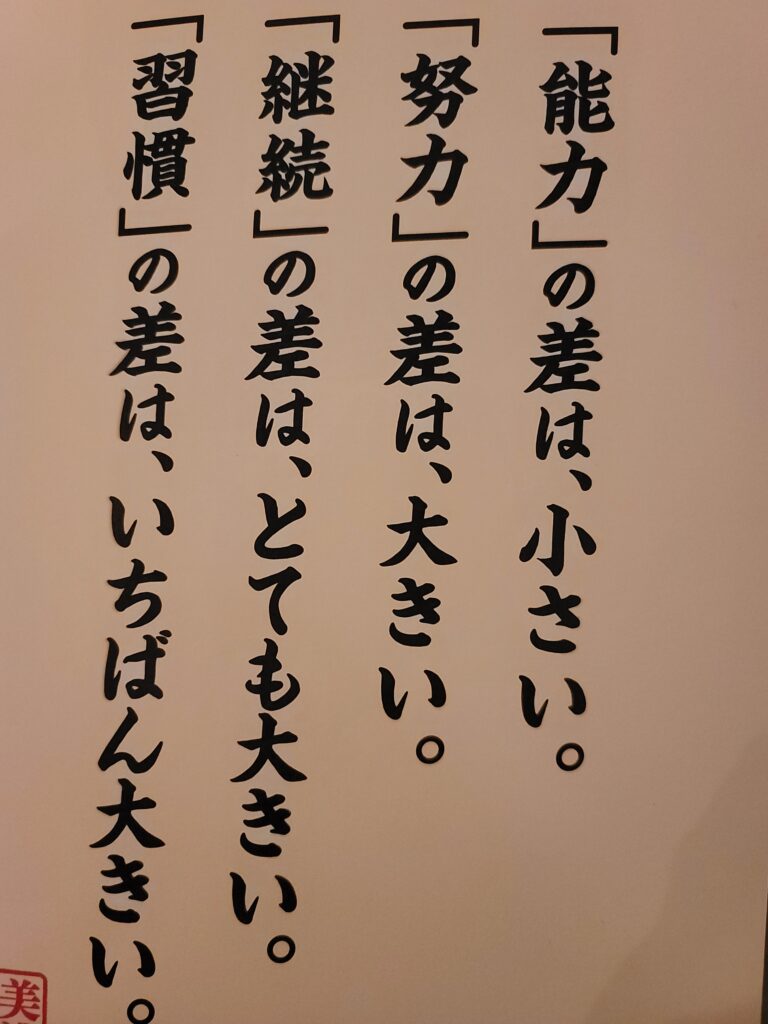 「能力」の差は、小さい。
「努力」の差は、大きい。
「継続」の差は、とても大きい。
「習慣」の差は、いちばん大きい。
美